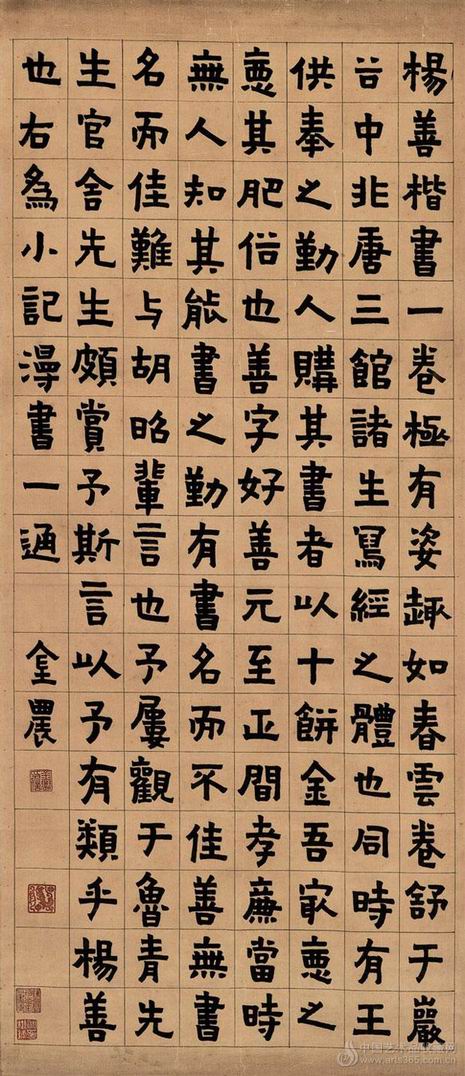 楊善楷書一卷極有姿趣如春雲卷舒于巖
谷中非唐三館諸生寫經之體也同時有王
供奉之勤人購其書者以十餅金吾冣恧之
恧其肥俗也善字好善元至正間孝廉當時
無人知其能書之勤有書名而不佳善無書
名而佳難与胡昭輩言也予屢觀于魯青先
生官舍先生頗賞予斯言以予有類乎楊善
也右為小記漫書一通 金農
www.arts365.com.cn